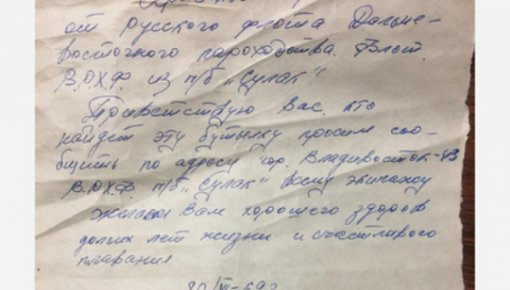 от русского флота Дальне-
восточного пароходства.
В.Р.Х.Ф. из п/б "Сулак"
Приветствую Вас, кто
найдет эту бутылку просим соо-
бщить по адресу гор. Владивосток-43
В.Р.Х.Ф. п/б "Сулак" всему экипажу
желаем Вам хорошего здоров
долгих лет жизни и счастливого
плавания